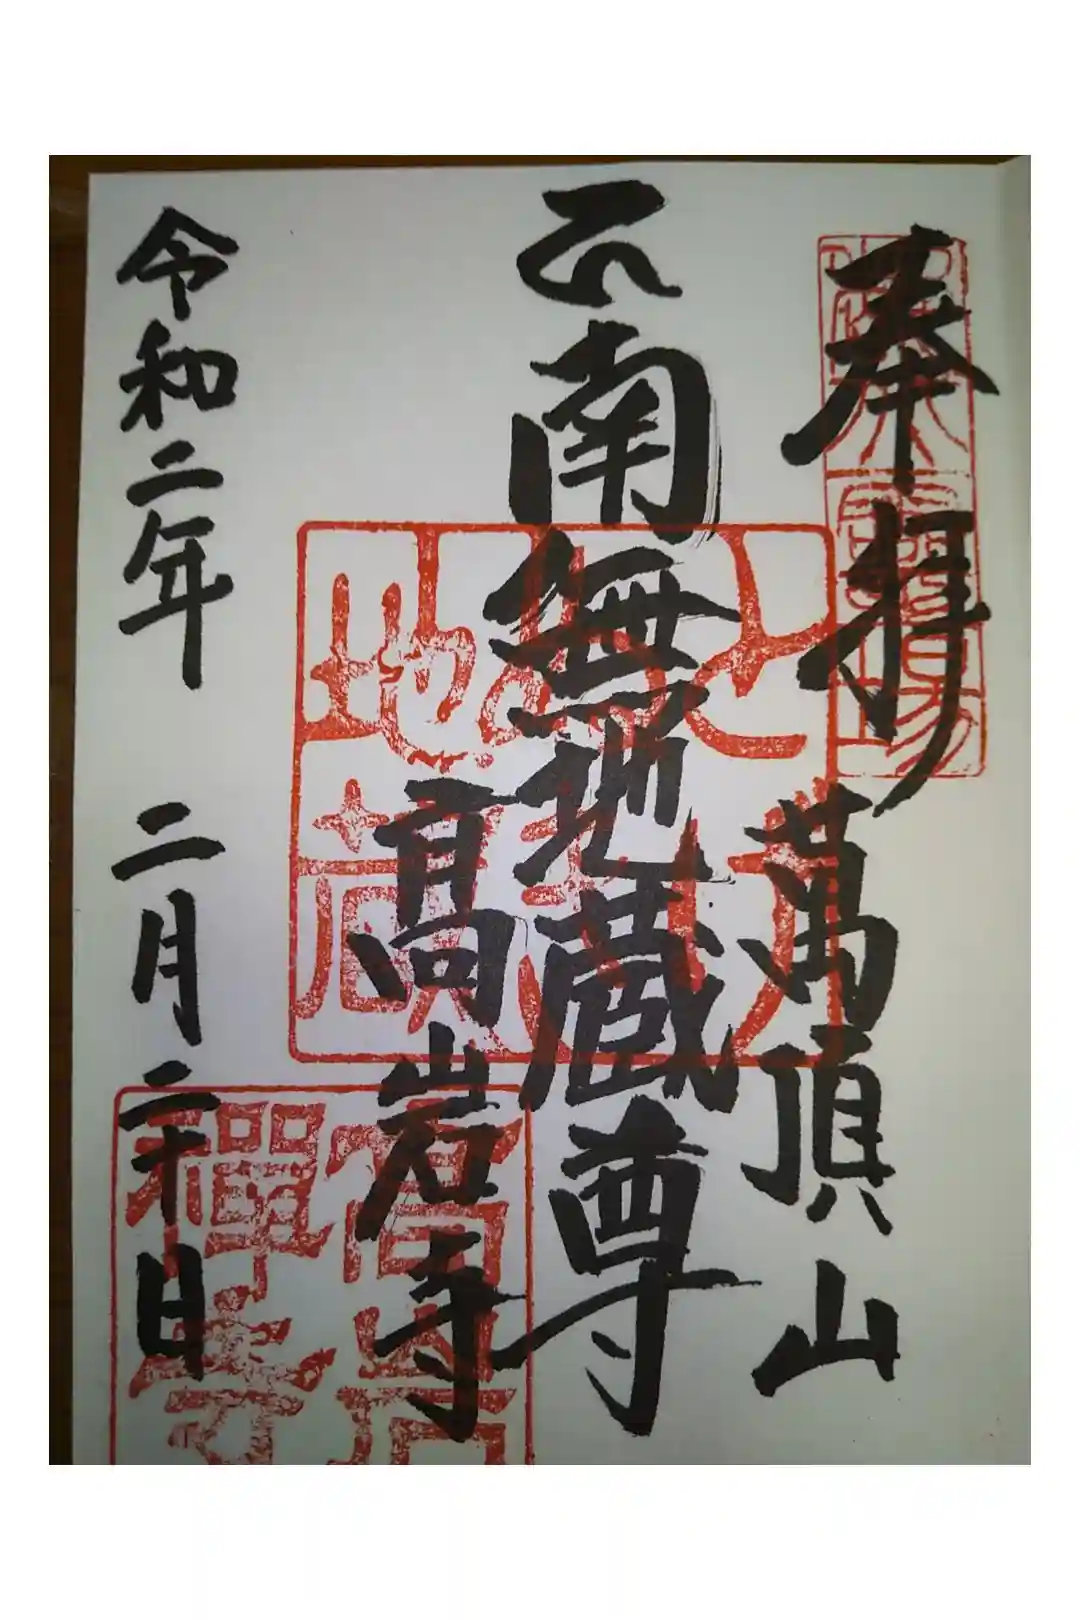 奉拝
萬頂山
南無地蔵尊
髙岩寺
令和二年 二月二十日
地蔵
高岩
禪寺